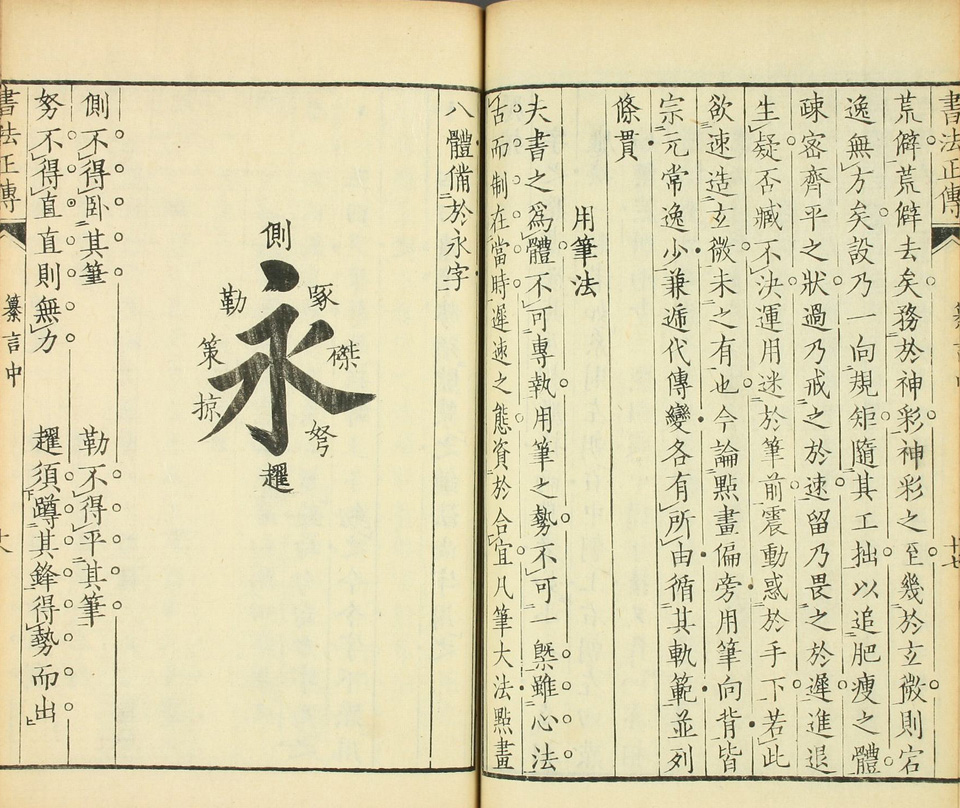 書法正傳
十七
荒僻荒僻去矣務於神彩神彩之至幾於玄微則宕
逸無方矣設乃一向規矩隨其工拙以追肥瘦之體
疎密齊平之狀過乃戒之於速留乃畏之於遲進退
生疑否臧不決運用迷於筆前震動惑於手下若此
欲速造玄微未之有也今論點畫偏旁用筆向背皆
宗元常逸少兼遞代傳變各有所由循其軌範並列
條貫
用筆法
夫書之為體不可專執用筆之勢不可一槩雖心法
古而制在當時遲速之態資於合宜凡筆大法點畫
八體備於永字
側
啄
勒
磔
策
掠
努
趯
永
側不得臥其筆
勒不得平其筆
努不得直直則無力
趯須蹲其鋒得勢而出
書法正傳
纂言中